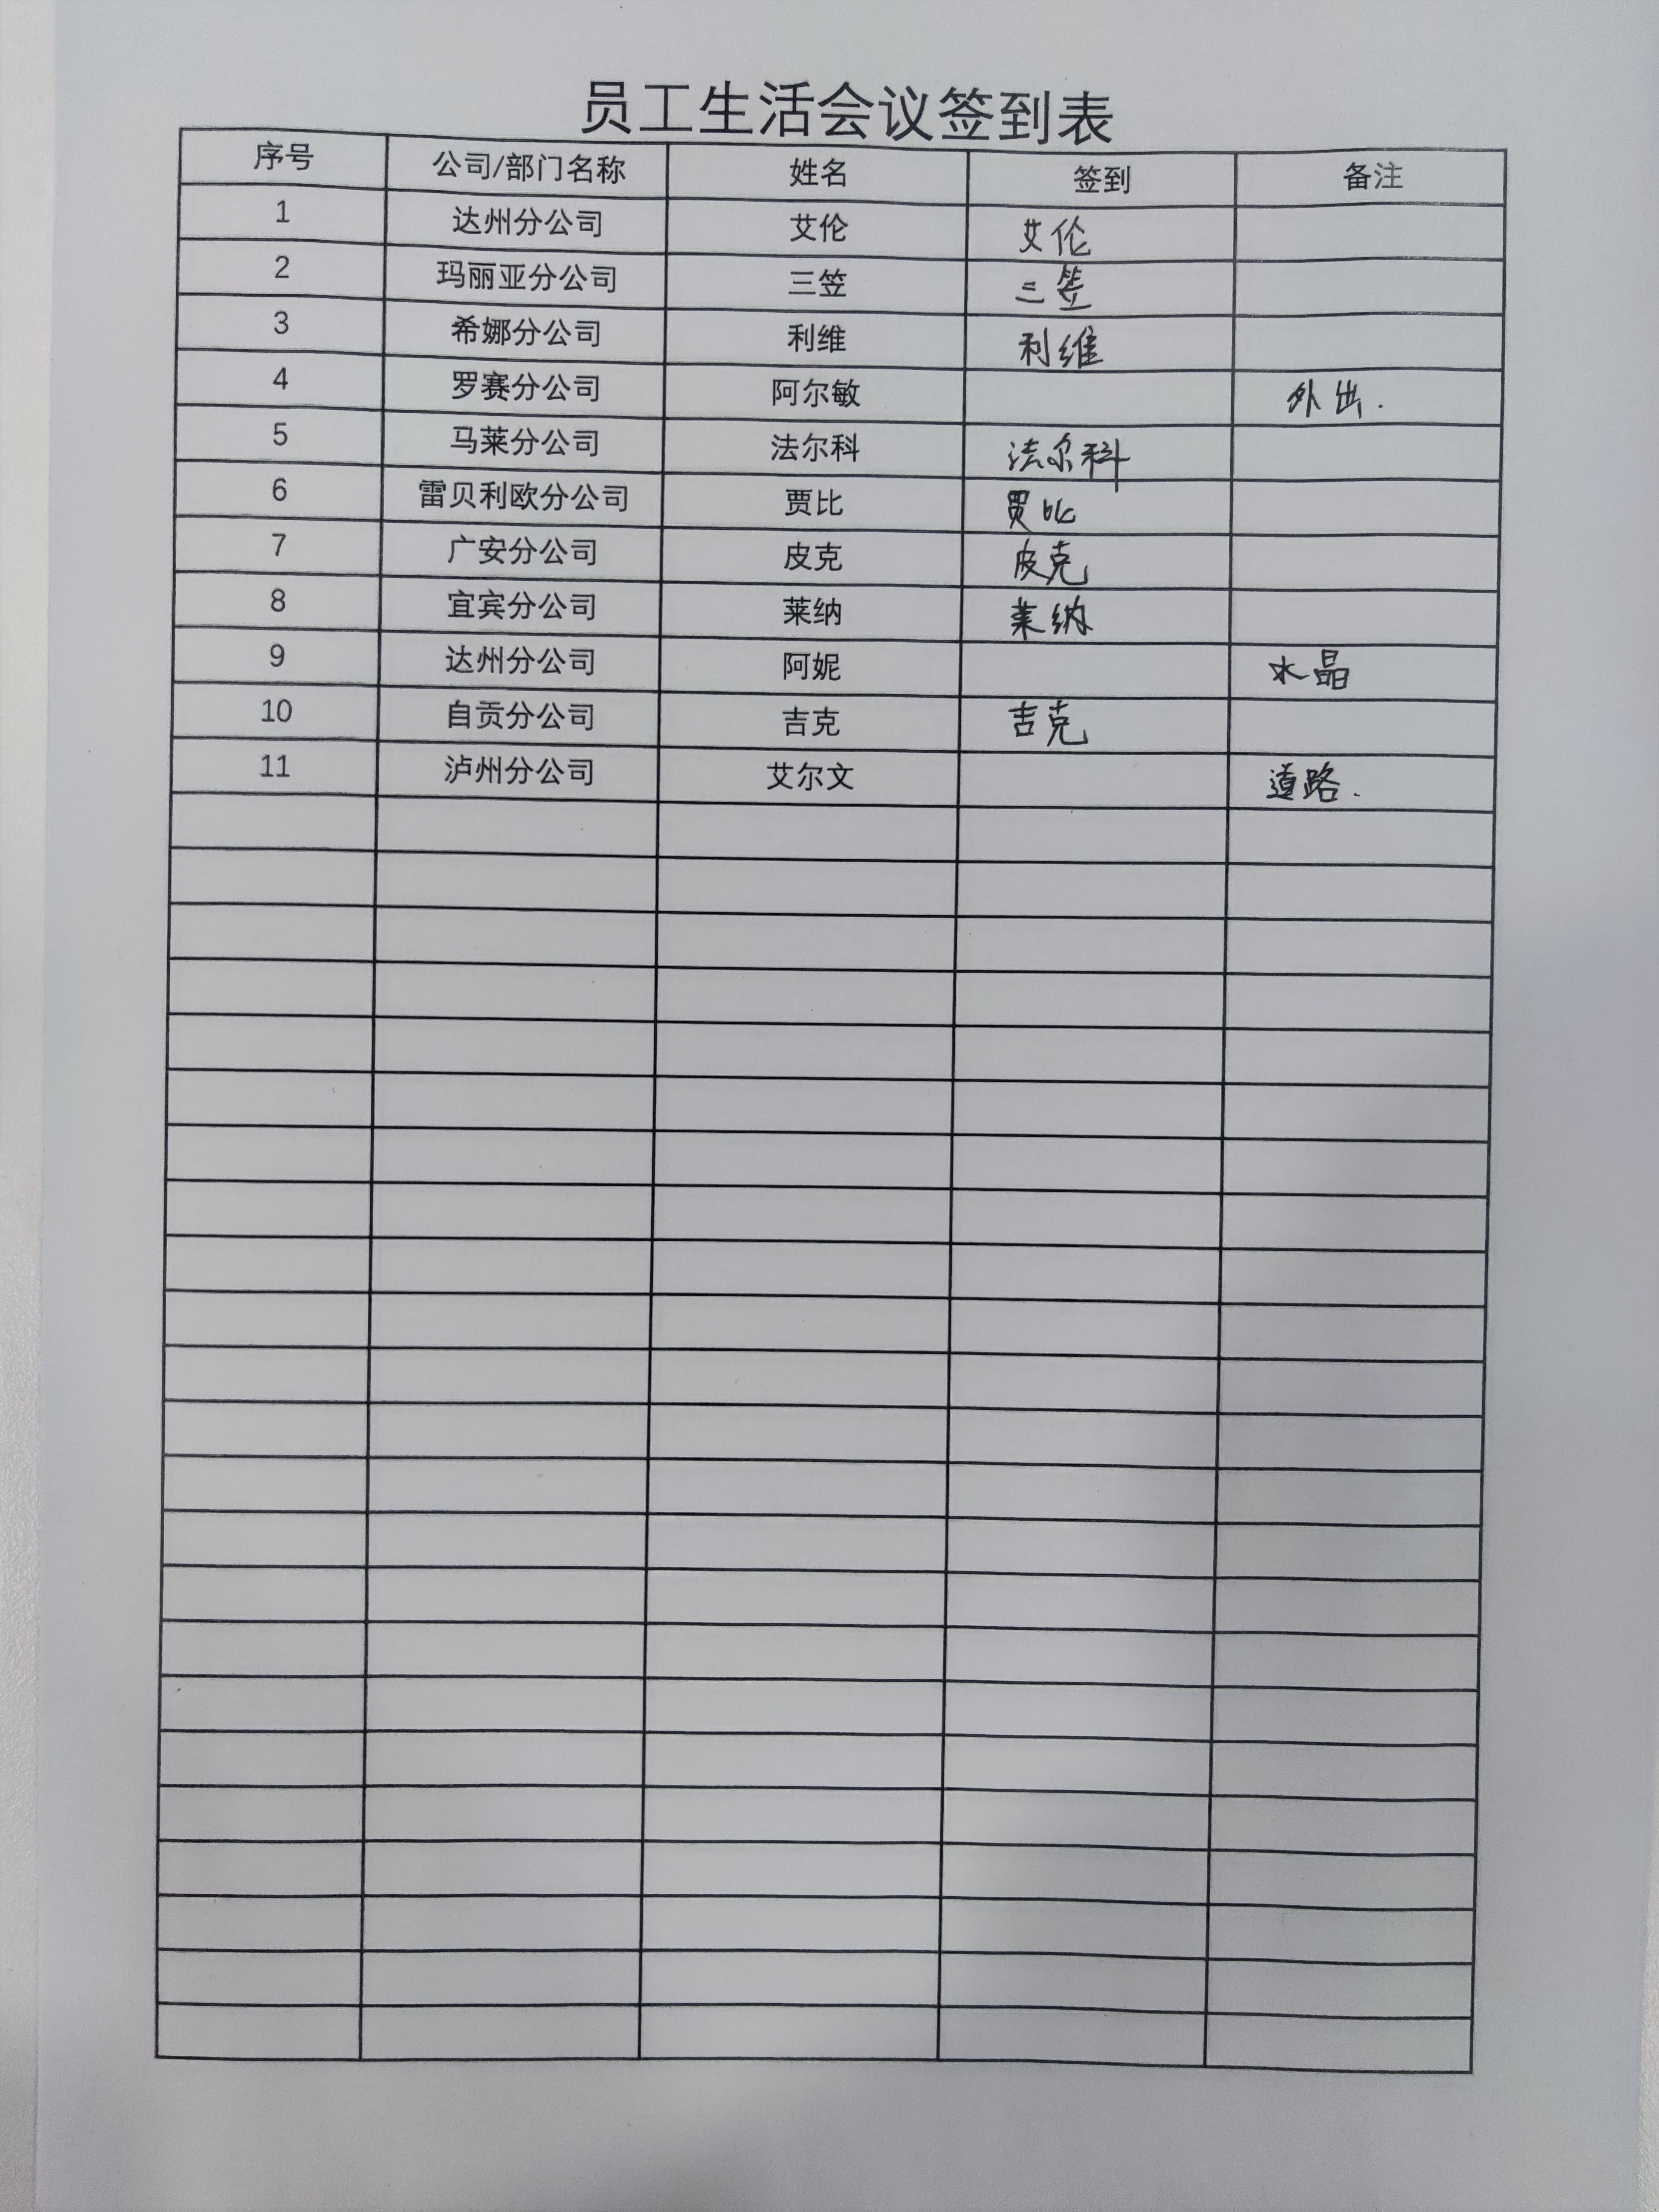 员工生活会议签到表
序号 公司/部门名称 姓名 签到 备注
1 达州分公司 艾伦 艾伦
2 玛丽亚分公司 三笠 三笠
3 希娜分公司 利维 利维
4 罗赛分公司 阿尔敏 外出.
5 马莱分公司 法尔科 法尔科
6 雷贝利欧分公司 贾比 贾比
7 广安分公司 皮克 皮克
8 宜宾分公司 莱纳 莱纳
9 达州分公司 阿妮 水晶
10 自贡分公司 吉克 吉克
11 泸州分公司 艾尔文 道路.